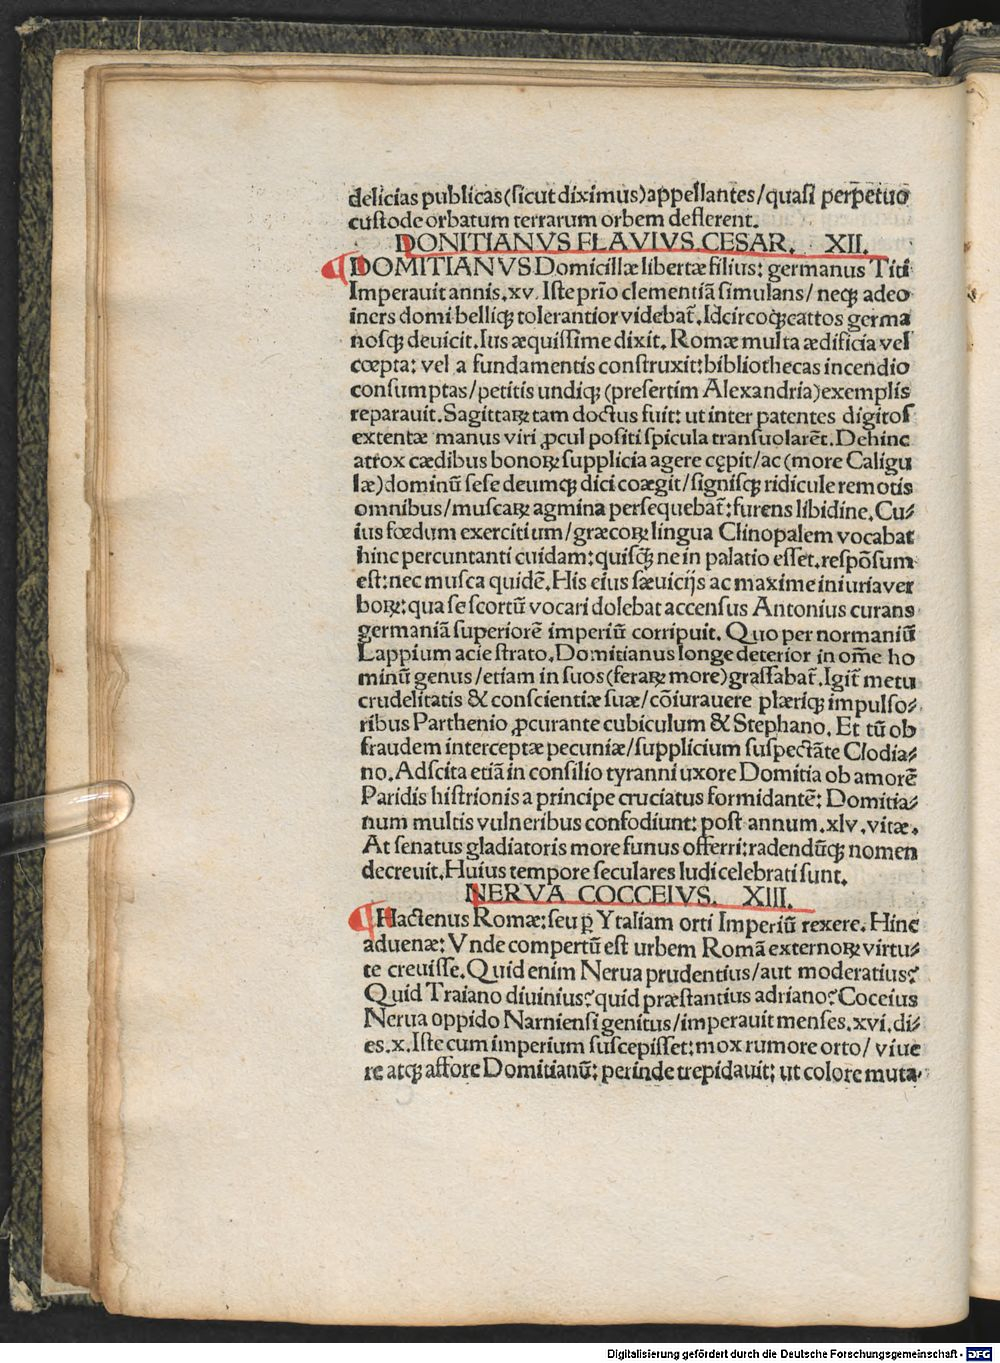 delicias publicas(sicut diximus)appellantes/quasi perpetuo
custode orbatum terrarum orbem deflerent.
DONITIANVS FLAVIVS CESAR. XII.
DOMITIANVS Domicillæ libertæ filius: germanus Titi
Imperauit annis.xv. Iste prĩo clementiã simulans/ neqꝫ adeo
iners domi belliqꝫ tolerantior videbat᷑. Idcircoqꝫ cattos germa
nosqꝫ deuicit. Ius æquissime dixit. Romæ multa ædificia vel
cœpta: vel a fundamentis construxit: bibliothecas incendio
consumptas/petitis undiqꝫ (presertim Alexandria)exemplis
reparauit. Sagittaꝝ tam doctus fuit: ut inter patentes digitos
extentæ manus viri ꝓcul positi spicula transuolarẽt. Dehinc
atrox cædibus bonoꝝ supplicia agere cępit/ac (more Caligu
læ)dominũ sese deumqꝫ dici coægit/signisqꝫ ridicule remotis
omnibus/muscaꝝ agmina persequebat᷑: furens libidine. Cu⸗
ius fœdum exercitium/græcoꝝ lingua Clinopalem vocabat
hinc percuntanti cuidam: quisqꝫ̃ ne in palatio esset. respõsum
est: nec musca quidẽ. His eius sæuicijs ac maxime iniuria ver
boꝝ: qua se scortũ vocari dolebat accensus Antonius curans
germaniã superiorẽ imperiũ corripuit. Quo per normaniũ
Lappium acie strato. Domitianus longe deterior in om̃e ho
minũ genus/etiam in suos(feraꝝ more)grassabat᷑. Igit᷑ metu
crudelitatis & conscientiæ suæ/cõiurauere plæriqꝫ impulso⸗
ribus Parthenio ꝓcurante cubiculum & Stephano. Et tũ ob
fraudem interceptæ pecuniæ/supplicium suspectãte Clodia⸗
no. Adscita etiã in consilio tyranni uxore Domitia ob amorẽ
Paridis histrionis a principe cruciatus formidantẽ: Domitia⸗
num multis vulneribus confodiunt: post annum.xlv.vitæ.
At senatus gladiatoris more funus offerri: radendũqꝫ nomen
decreuit. Huius tempore seculares ludi celebrati sunt.
NERVA COCCEIVS. XIII.
Hactenus Romæ: seu p̲ Ytaliam orti Imperiũ rexere. Hinc
aduenæ: Vnde compertũ est urbem Romã externoꝝ virtu⸗
te creuisse. Quid enim Nerua prudentius/aut moderatius?
Quid Traiano diuinius? quid præstantius adriano? Coceius
Nerua oppido Narniensi genitus/imperauit menses.xvi.di⸗
es.x. Iste cum imperium suscepisset: mox rumore orto/ viue
re atqꝫ affore Domitianũ: perinde trepidauit: ut colore muta⸗
Digitalisierung gefördert durch die Deutsche Forschungsgemeinschaft - DFG